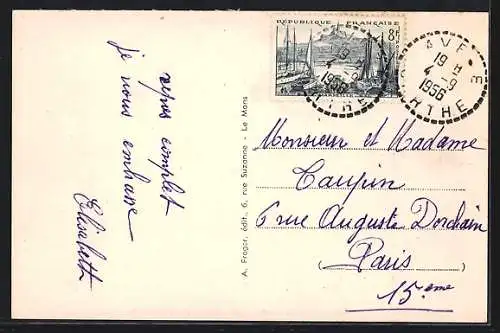 repos complet
je vous embrasse
Elisabeth
A. Fragor, édit., 6, rue Suzanne - Le Mans
RÉPUBLIQUE FRANÇAISE
8F
19 H
4 - 9
1956
AVE
19 H
4 - 9
1956
RTHE
Monsieur et Madame
Taupin
6 rue Auguste Dorchain
Paris
15eme